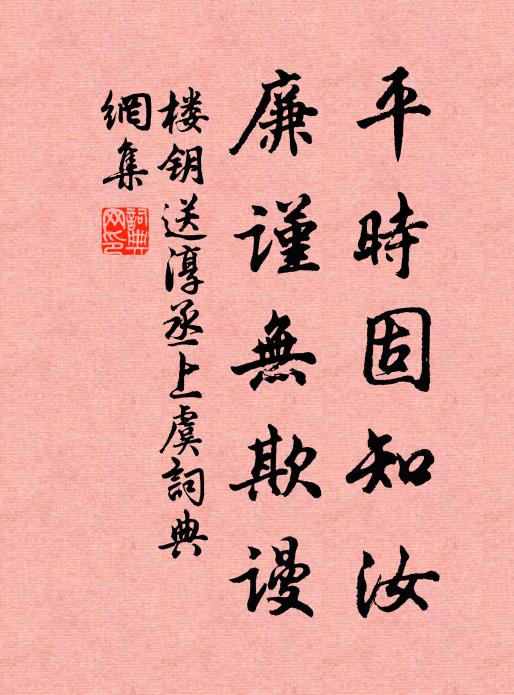 平時固知汝
廉謹無欺謾
楼钥送淳丞上虞詞典
網集
詞典
网印